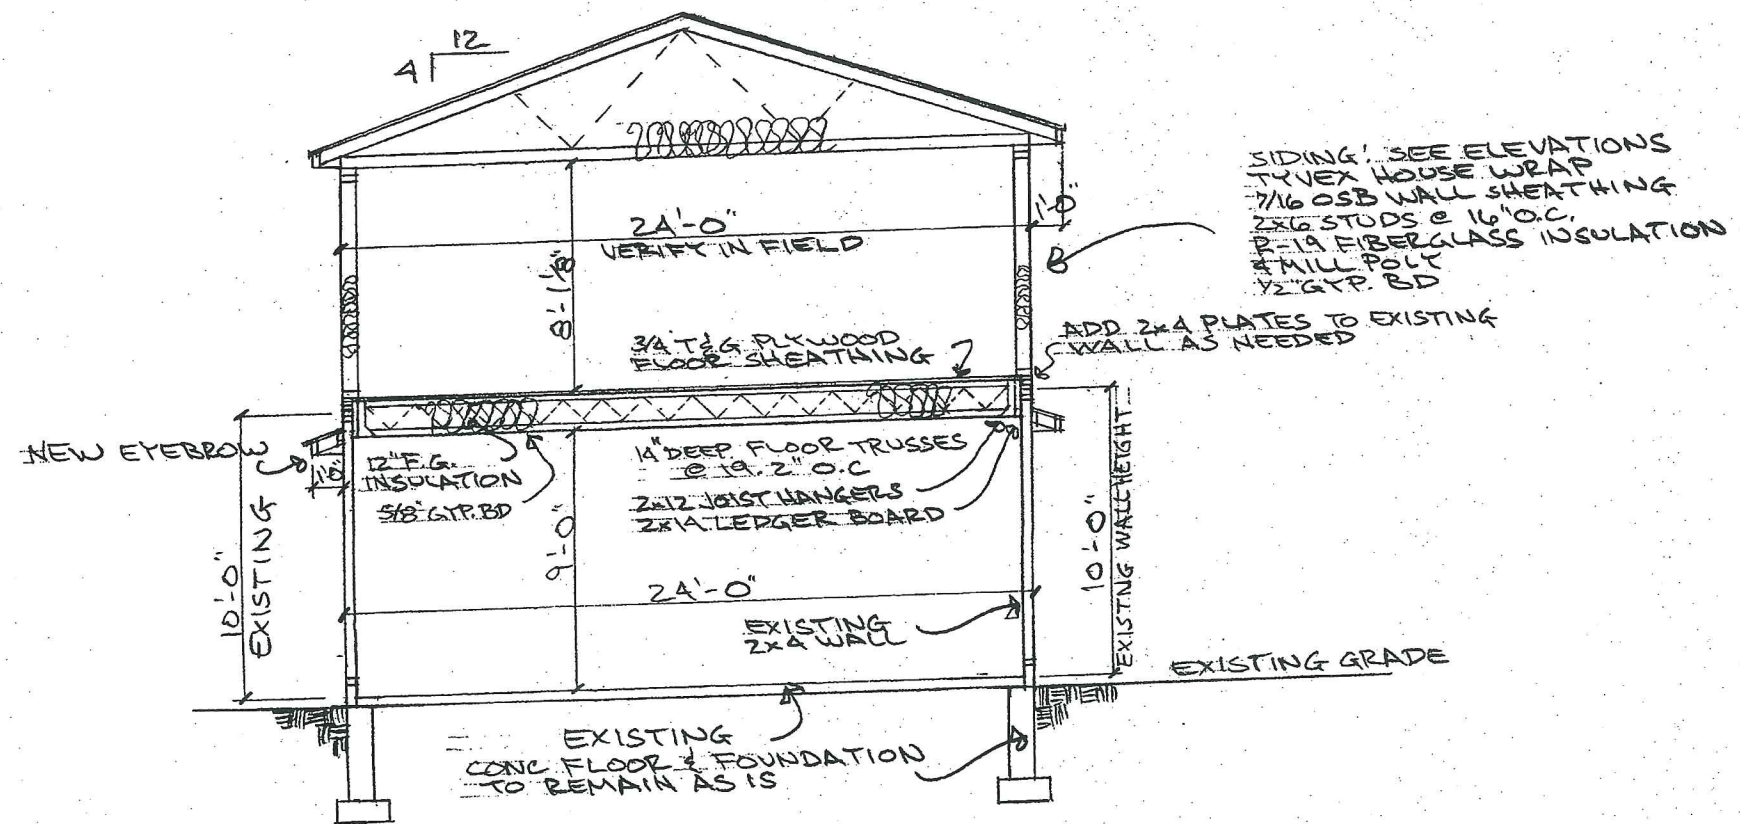 12
4
SIDING: SEE ELEVATIONS
TYVEX HOUSE WRAP
7/16 OSB WALL SHEATHING
2x6 STUDS @ 16" O.C.
R-19 FIBERGLASS INSULATION
4 MILL POLY
1/2" GYP. BD
1'-0"
24'-0"
VERIFY IN FIELD
8'-1 1/8"
3/4 T&G PLYWOOD
FLOOR SHEATHING
ADD 2x4 PLATES TO EXISTING
WALL AS NEEDED
NEW EYEBROW
1'-0"
12" F.G.
INSULATION
5/8" GYP. BD
14" DEEP FLOOR TRUSSES
@ 19.2" O.C
2x12 JOIST HANGERS
2x14 LEDGER BOARD
10'-0"
EXISTING
9'-0"
24'-0"
10'-0"
EXISTNG WALL HEIGHT
EXISTING
2x4 WALL
EXISTING GRADE
EXISTING
CONC FLOOR & FOUNDATION
TO REMAIN AS IS